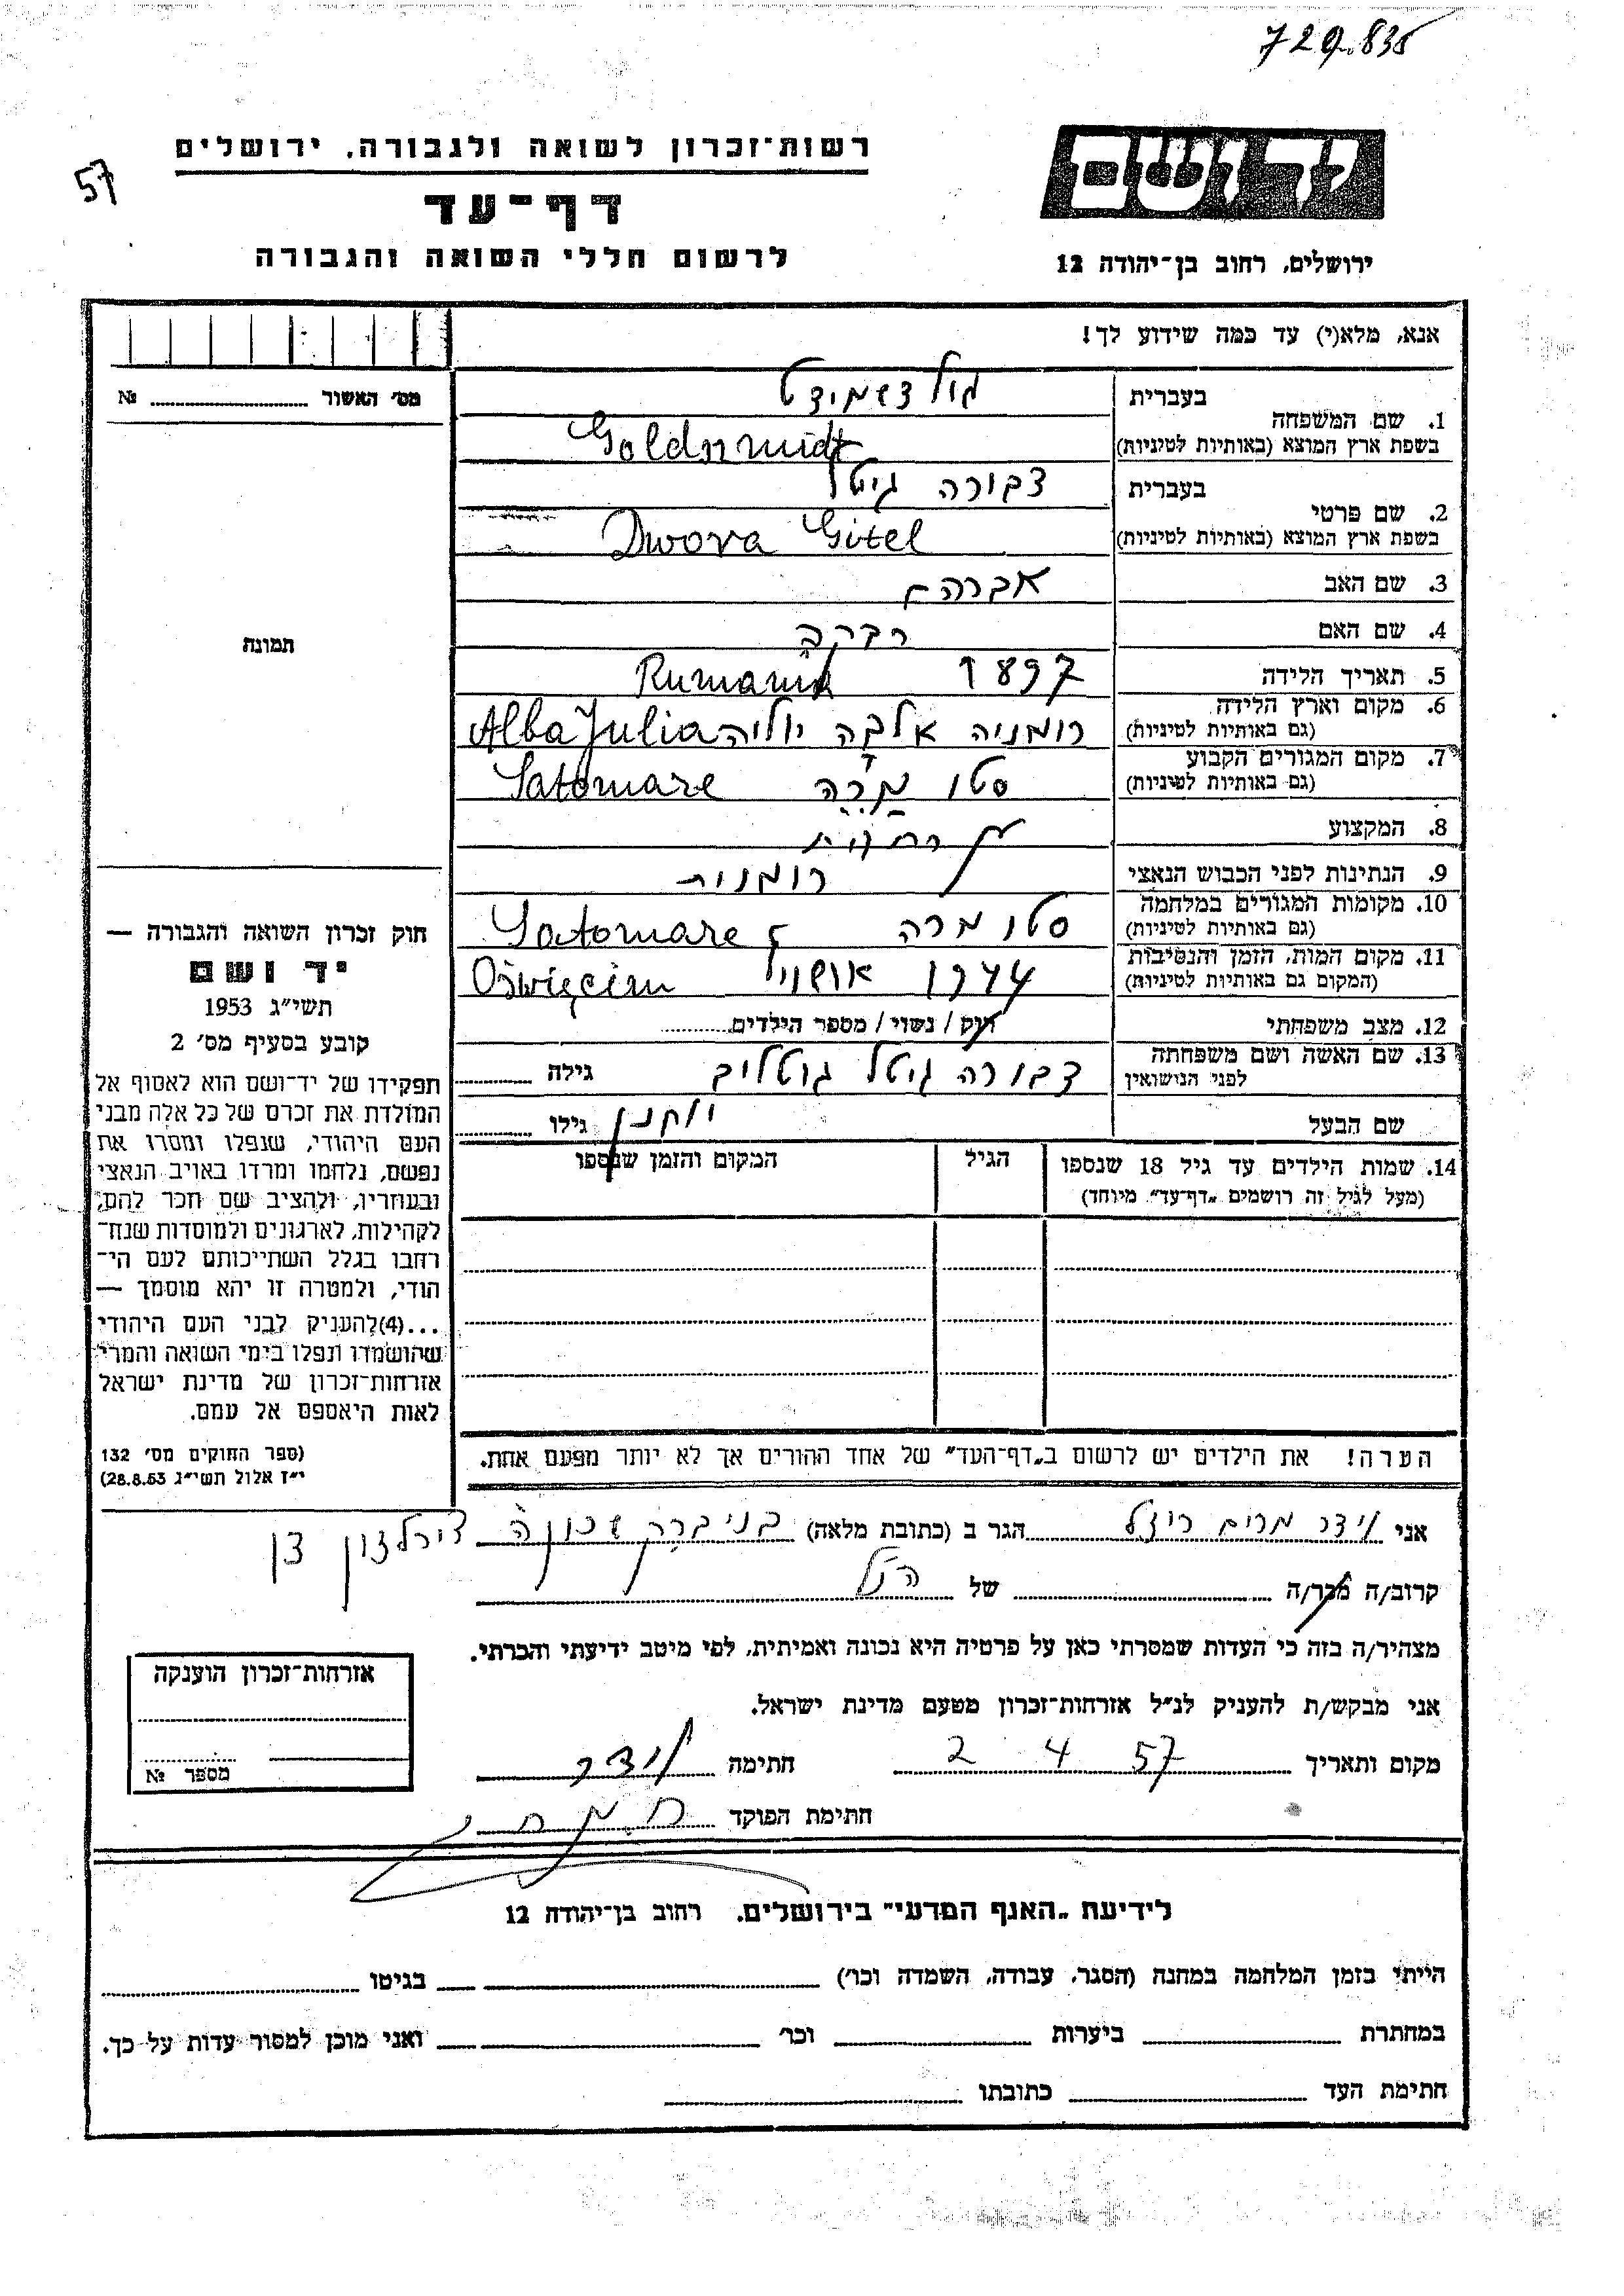 729.835
57
ידושם
ירושלים, רחוב בן־יהודה 12
רשות־זכרון לשואה ולגבורה, ירושלים
דף־עד
לרשום חללי השואה והגבורה
אנא, מלא(י) עד כמה שידוע לך!
מס׳ האשור № 
1. שם המשפחה בעברית גולדשמידט
בשפת ארץ המוצא (באותיות לטיניות) Goldsmidt
2. שם פרטי בעברית דבורה גיטל
בשפת ארץ המוצא (באותיות לטיניות) Dwora Gitel
3. שם האב אברהם
4. שם האם רבקה
5. תאריך הלידה 1897 Rumania
6. מקום וארץ הלידה (גם באותיות לטיניות) רומניה אלבה יוליה Alba Julia
7. מקום המגורים הקבוע (גם באותיות לטיניות) סטו מרה Satomare
8. המקצוע
9. הנתינות לפני הכבוש הנאצי רומנית
10. מקומות המגורים במלחמה (גם באותיות לטיניות) סטו מרה Satomare
11. מקום המות, הזמן והנסיבות (המקום גם באותיות לטיניות) Oświęcim
12. מצב משפחתי רוק / נשוי / מספר הילדים
13. שם האשה ושם משפחתה לפני הנושואין דבורה גיטל גוטליב גילה
שם הבעל יוחנן גילו
14. שמות הילדים עד גיל 18 שנספו הגיל המקום והזמן שנספו
(מעל לגיל זה רושמים „דף־עד״ מיוחד)
הערה! את הילדים יש לרשום ב„דף־העד״ של אחד ההורים אך לא יותר מפעם אחת.
תמונה
חוק זכרון השואה והגבורה —
יד ושם
תשי״ג 1953
קובע בסעיף מס׳ 2
תפקידו של יד־ושם הוא לאסוף אל
המולדת את זכרם של כל אלה מבני
העם היהודי, שנפלו ומסרו את
נפשם, נלחמו ומרדו באויב הנאצי
ובעוזריו, ולהציב שם וזכר להם,
לקהילות, לארגונים ולמוסדות שנח־
רחבו בגלל השתייכותם לעם הי־
הודי, ולמטרה זו יהא מוסמך —
...(4)להעניק לבני העם היהודי
שהושמדו ונפלו בימי השואה והמרי
אזרחות־זכרון של מדינת ישראל
לאות היאספם אל עמם.
(ספר החוקים מס׳ 132
י״ז אלול תשי״ג 28.8.53)
אני וידר מרים רוזל הגר ב (כתובת מלאה) בני ברק שכונה דן
קרוב/ה מכר/ה של הנ״ל
מצהיר/ה בזה כי העדות שמסרתי כאן על פרטיה היא נכונה ואמיתית, לפי מיטב ידיעתי והכרתי.
אני מבקש/ת להעניק לנ״ל אזרחות־זכרון מטעם מדינת ישראל.
מקום ותאריך 2 4 57 חתימה וידר
חתימת הפוקד
אזרחות־זכרון הוענקה
מספר №
לידיעת „האגף המדעי״ בירושלים, רחוב בן־יהודה 12
הייתי בזמן המלחמה במחנה (הסגר, עבודה, השמדה וכו׳) בגיטו
במחתרת ביערות וכו׳ ואני מוכן למסור עדות על כך.
חתימת העד כתובתו